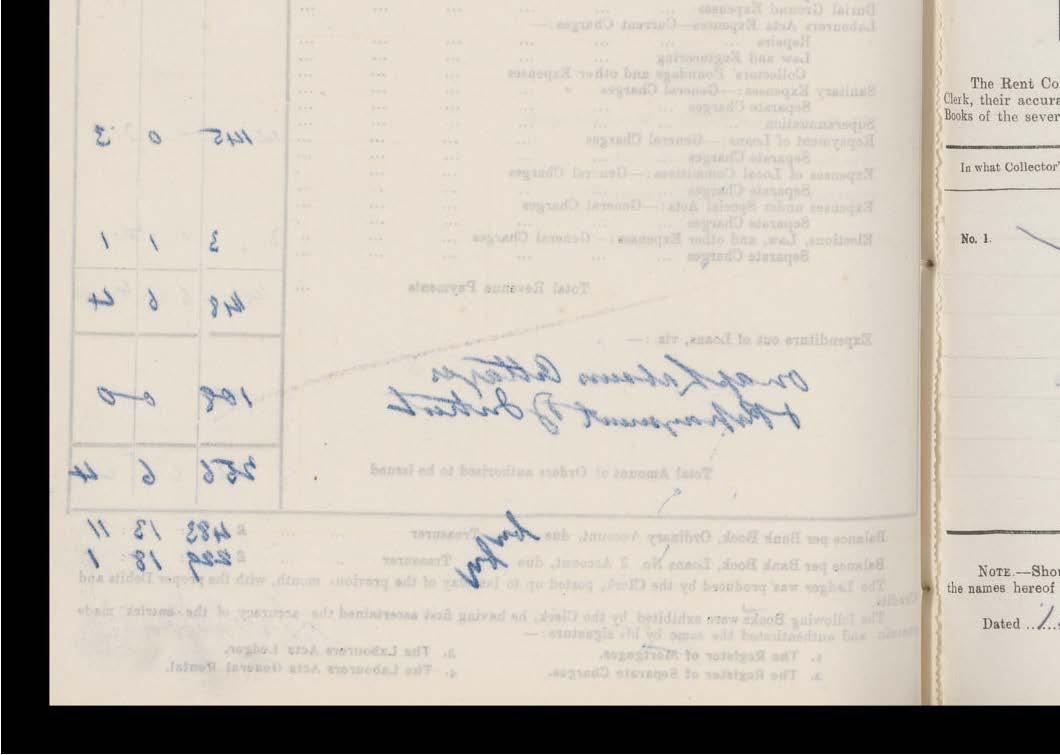 Burial Ground Expenses
Labourers Acts Expenses—Current Charges:—
Repairs
Law and Engineering
Collectors' Poundage and other Expenses
Sanitary Expenses:—General Charges
Separate Charges
Superannuation
Repayment of Loans:—General Charges 145 0 3
Separate Charges
Expenses of Local Committees:—General Charges
Separate Charges
Expenses under Special Acts:—General Charges
Separate Charges
Elections, Law, and other Expenses:—General Charges 3 1 1
Separate Charges
Total Revenue Payments 48 6 4
Expenditure out of Loans, viz:—
Cottages
108 0 0
Total Amount of Orders authorised to be issued 256 6 4
Balance per Bank Book, Ordinary Account, due by Treasurer £ 483: 13: 11
Balance per Bank Book, Loans No. 2 Account, due by Treasurer £ 229: 18: 1
The Ledger was produced by the Clerk, posted up to last day of the previous month, with the proper Debits and
Credits.
The following Books were exhibited by the Clerk, he having first ascertained the accuracy of the entries made
therein and authenticated the same by his signature:—
1. The Register of Mortgages. 3. The Labourers Acts Ledger.
2. The Register of Separate Charges. 4. The Labourers Acts General Rental.
The Rent Co
Clerk, their accura
Books of the sever
In what Collector'
No. 1.
NOTE.—Shou
the names hereof
Dated